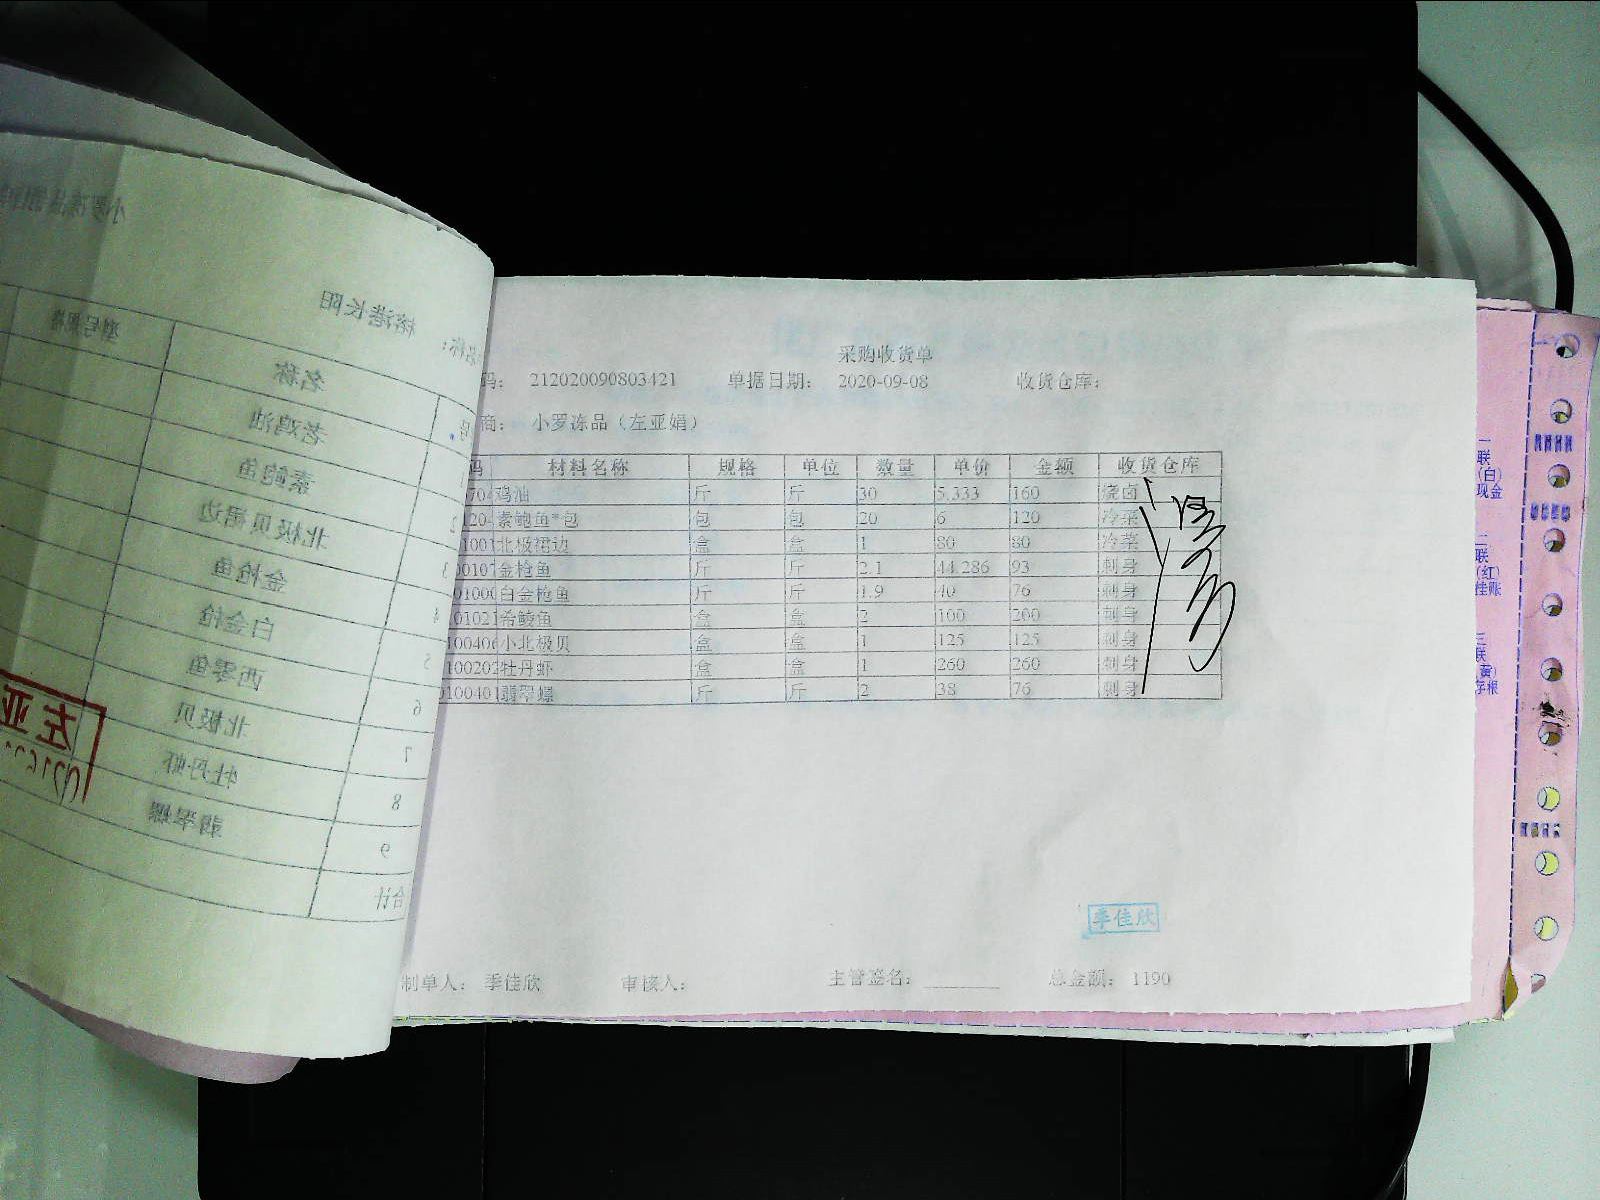 采购收货单
码： 212020090803421 单据日期： 2020-09-08 收货仓库：
商： 小罗冻品（左亚娟）
码 材料名称 规格 单位 数量 单价 金额 收货仓库
704 鸡油 斤 斤 30 5.333 160 烧卤
120 素鲍鱼*包 包 包 20 6 120 冷菜
1001 北极裙边 盒 盒 1 80 80 冷菜
00107 金枪鱼 斤 斤 2.1 44.286 93 刺身
01000 白金枪鱼 斤 斤 1.9 40 76 刺身
01021 希鲮鱼 盒 盒 2 100 200 刺身
100406 小北极贝 盒 盒 1 125 125 刺身
100202 牡丹虾 盒 盒 1 260 260 刺身
100401 翡翠螺 斤 斤 2 38 76 刺身
季佳欣
制单人： 季佳欣 审核人： 主管签名： 总金额： 1190
榕港长阳
名称 型号规格
老鸡油
2 素鲍鱼
3 北极贝裙边
4 金枪鱼
5 白金枪
6 西零鱼
7 北极贝
8 牡丹虾
9 翡翠螺
合计
左亚
一联（白）现金
二联（红）挂账
三联（黄）存根